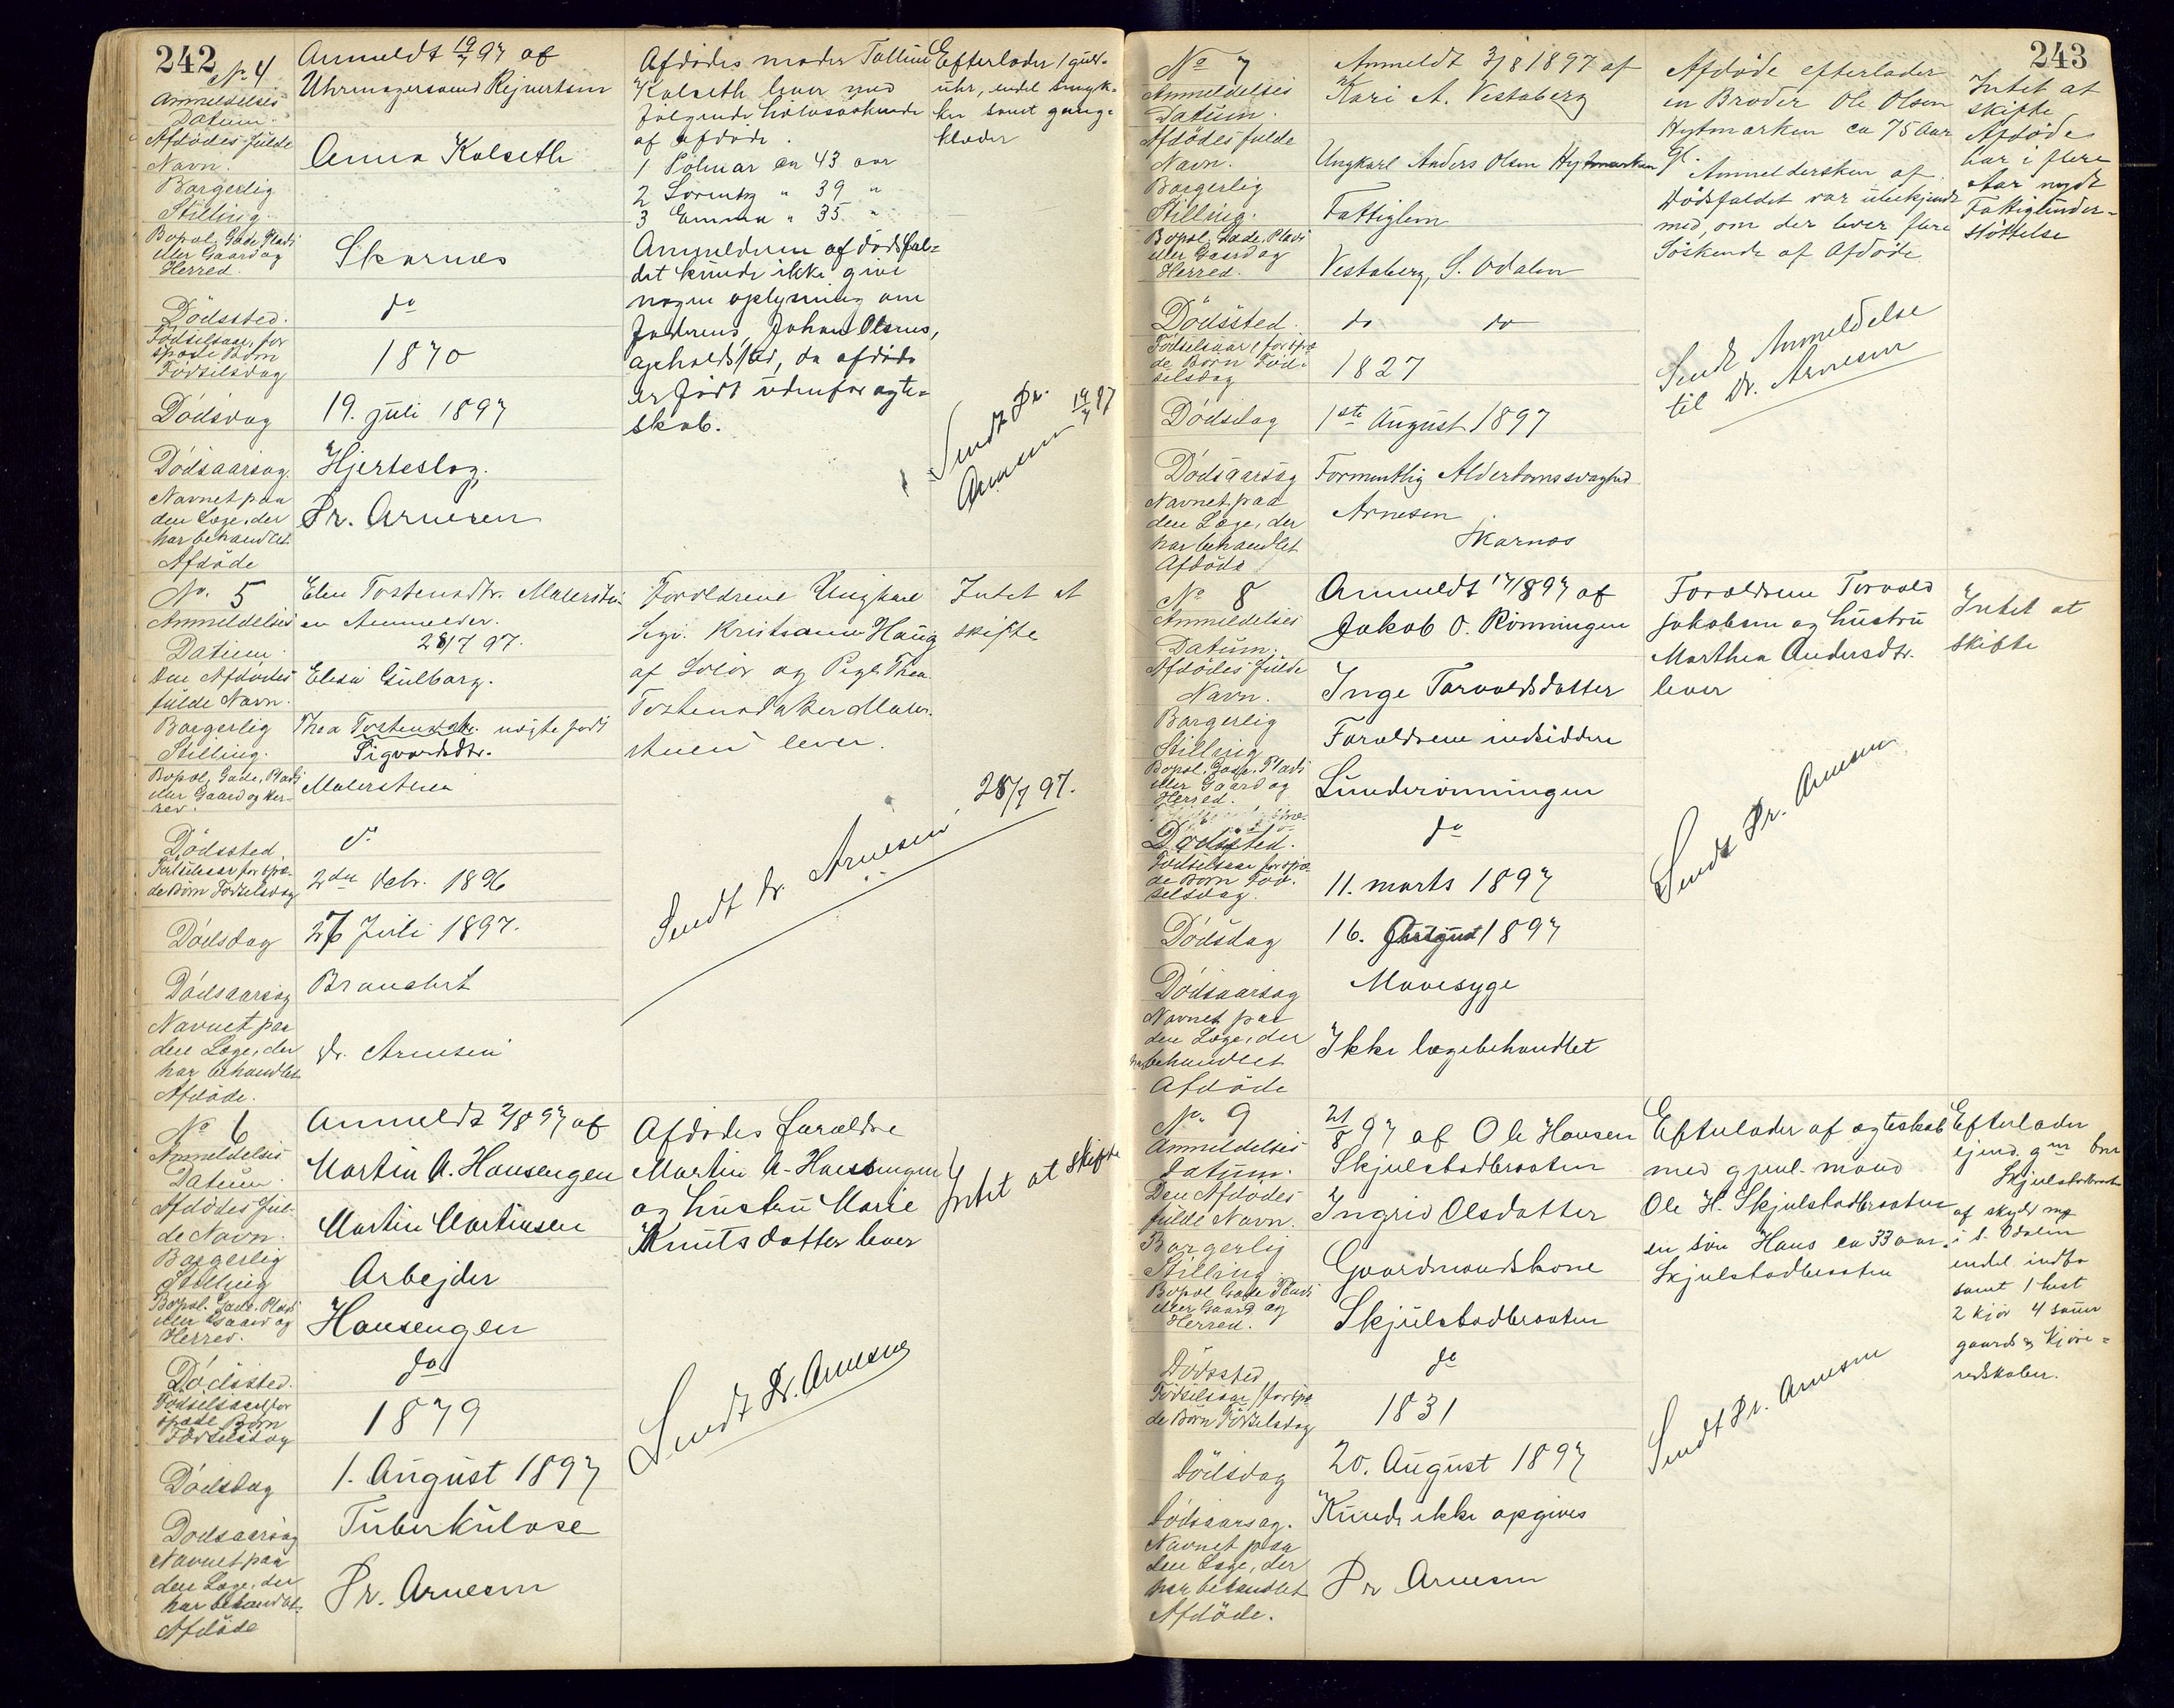 242
No 4
Anmeldt 19/7 97 af
Uhrmagersvend Rejnertsen
Anmeldelses
Datum.
Afdödes fulde
Navn.
Anna Kolseth
Borgerlig
Stilling.
Bopæl, Gade, Plads
eller Gaard og
Herred.
Skarnes
Dödssted.
do
Födselsaar, for
spæde Börn
Födselsdag
1870
Dödsdag
19. juli 1897
Dödsaarsag.
Hjerteslag.
Navnet paa
den Læge, der
har behandlet
Afdöde
Dr. Arnesen
Afdödes moder
Kolseth lever med
følgende halvsøskende
af afdøde.
1 Polmar ca 43 aar
2 " 39 "
3 Emma " 35 "
Anmelderen af dødsfal=
det kunde ikke give
nogen oplysning om
faderens, Johan Olsens,
opholdsted, da afdøde
er født udenfor ægte=
skab.
Efterlader 1 guld-
uhr, endel smyk-
ker samt gang-
klæder
Sendt Dr.
Arnesen 19/7 97
No. 5
Elen Tostensdtr. Malerstu-
en Anmelder.
Anmeldelses
Datum.
28/7 97.
Den Afdödes
fulde Navn.
Elesa Gulborg.
Borgerlig
Stilling.
Thea Tostensdtr. uægte født
Sigvardsdtr.
Bopæl, Gade, Plads
eller Gaard og Her-
red.
Malerstuen
Dödssted.
do
Födselsaar for spæ-
de Börn Födselsdag
2den Febr. 1896
Dödsdag
27 Juli 1897.
Dödsaarsag
Navnet paa
den Læge, der
har behandlet
Afdöde.
Dr. Arnesen
Forældrene Ungkarl
Kristian Haug
af Solør og Pige Thea
Tostensdatter Maler-
stuen lever.
Intet at
skifte
Sendt Dr. Arnesen 28/7 97.
No 6
Anmeldt 2/8 97 af
Martin A. Hansengen
Anmeldelses
Datum.
Afdödes ful-
de Navn.
Martin Martinsen
Borgerlig
Stilling
Arbejder
Bopæl. Gade. Plads
eller Gaard og
Herred.
Hansengen
Dödssted.
do
Födselsaar for
spæde Börn
Födselsdag
1879
Dödsdag
1. August 1897
Dödsaarsag
Tuberkulose
Navnet paa
den Læge, der
har behandlet
Afdöde
Dr. Arnesen
Afdødes forældre
Martin A. Hansengen
og hustru Marie
Knutsdatter lever
Intet at skifte
Sendt Dr. Arnesen
243
No 7
Anmeldelses
Datum.
Anmeldt 3/8 1897 af
Kari A. Vestaberg
Afdödes fulde
Navn.
Ungkarl Anders Olsen Hytmarken
Borgerlig
Stilling.
Fattiglem
Bopæl, Gade, Plads
eller Gaard og
Herred.
Vestaberg, S. Odalen
Dödssted.
do do
Födselsaar, for spæ
de Börn Föd-
selsdag
1827
Dödsdag
1ste August 1897
Dödsaarsag
Formentlig Alderdomssvaghed
Navnet paa
den Læge, der
har behandlet
Afdöde
Arnesen
Skarnes
Afdøde efterlader
en Broder Ole Olsen
Hytmarken ca 75 Aar
gl.
Anmeldersken af
Dødsfaldet var ubekjendt
med, om der lever flere
Søskende af Afdøde
Intet at
skifte
Afdøde
har i flere
Aar nydt
Fattigunder=
støttelse
Sendt Anmeldelse
til Dr. Arnesen
No 8
Anmeldelses
Datum.
Anmeldt 17/8 97 af
Jakob O. Rönningen
Afdödes fulde
Navn.
Inge Torvaldsdatter
Borgerlig
Stilling
Forældrene indsiddere
Bopæl. Gade. Plads
eller Gaard og
Herred.
Lunderönningen
Dödssted.
do
Födselsaar for spæ
de Börn Föd-
selsdag.
11. marts 1897
Dödsdag
16. August 1897
Dödsaarsag
Mavesyge
Navnet paa
den Læge, der
har behandlet
Afdöde
Ikke lægebehandlet
Forældrene Torvald
Jakobsen og hustru
Marthea Andersdtr.
lever
Intet at
skifte
Sendt Dr. Arnesen
No. 9
Anmeldelses
datum.
21/8 97 af Ole Hansen
Skjulstadbraaten
Den Afdödes
fulde Navn.
Ingrid Olsdatter
Borgerlig
Stilling.
Gaardmandskone
Bopæl Gade Plads
eller Gaard og
Herred.
Skjulstadbraaten
Dödssted
do
Födselsaar, for spæ
de Börn Födselsdag
1831
Dödsdag
20. August 1897
Dödsaarsag.
Kunde ikke opgives
Navnet paa
den Læge, der
har behandlet
Afdöde.
Dr Arnesen
Efterlader af ægteskab
med gjenl. mand
Ole H. Skjulstadbraaten
en søn Hans ca 33 aar.
Skjulstadbraaten
Efterlader
ejend.
Skjulstadbraaten
af skyld
i S. Odalen
endel indbo
samt 1 hest
2 kjør 4 sauer
gaards og kjøre=
redskaber.
Sendt Dr. Arnesen